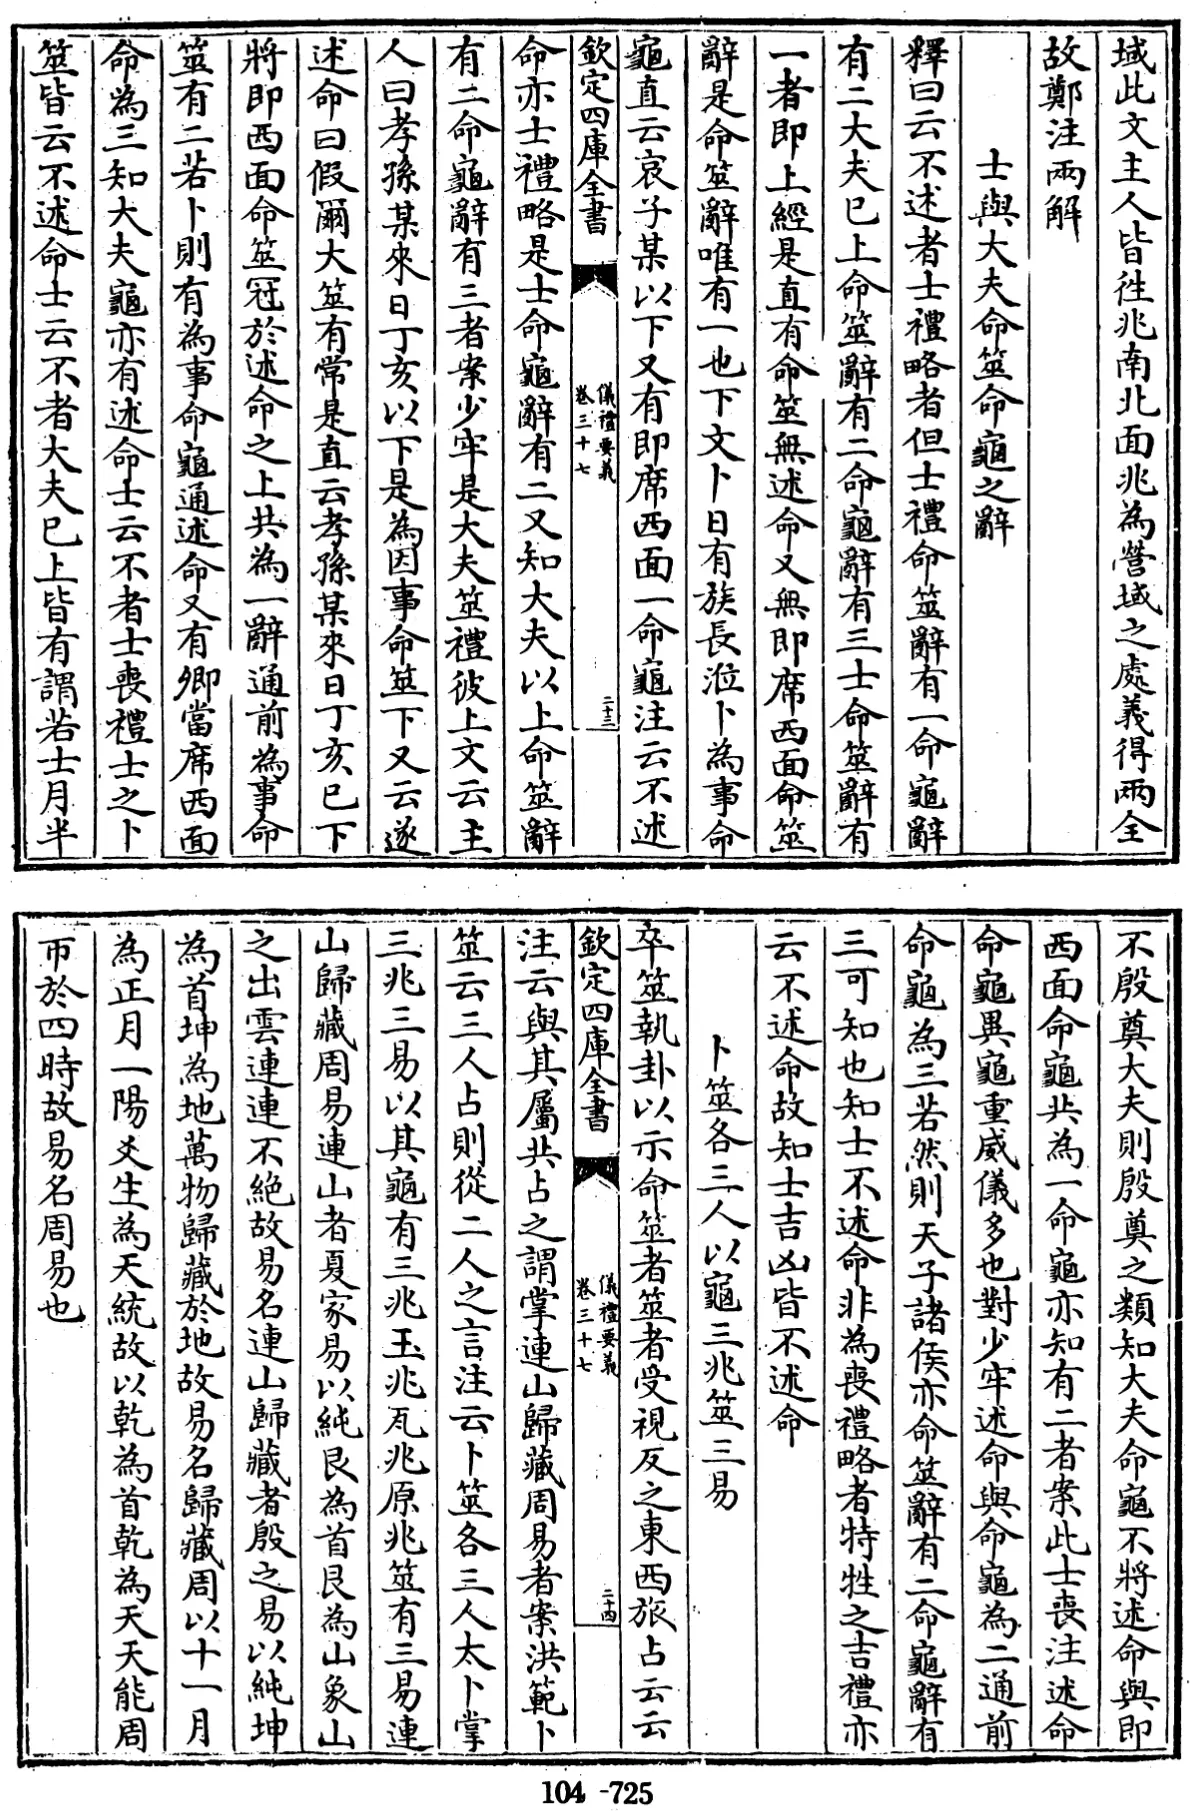 域此文主人皆徃兆南北面兆為營域之處義得兩全
故鄭注兩解
士與大夫命筮命龜之辭
釋曰云不述者士禮略者但士禮命筮辭有一命龜辭
有二大夫已上命筮辭有二命龜辭有三士命筮辭有
一者即上經是直有命筮無述命又無即席西面命筮
辭是命筮辭唯有一也下文卜日有族長涖卜為事命
龜直云哀子某以下又有即席西面一命龜注云不述
欽定四庫全書
儀禮要義
卷三十七
二十三
命亦士禮略是士命龜辭有二又知大夫以上命筮辭
有二命龜辭有三者案少牢是大夫筮禮彼上文云主
人曰孝孫某來日丁亥以下是為因事命筮下又云遂
述命曰假爾大筮有常是直云孝孫某來日丁亥已下
將即西面命筮冠於述命之上共為一辭通前為事命
筮有二若卜則有為事命龜通述命又有卿當席西面
命為三知大夫龜亦有述命士云不者士喪禮士之卜
筮皆云不述命士云不者大夫已上皆有謂若士月半
不殷奠大夫則殷奠之類知大夫命龜不將述命與即
西面命龜共為一命龜亦知有二者案此士喪注述命
命龜異龜重威儀多也對少牢述命與命龜為二通前
命龜為三若然則天子諸侯亦命筮辭有二命龜辭有
三可知也知士不述命非為喪禮略者特牲之吉禮亦
云不述命故知士吉凶皆不述命
卜筮各三人以龜三兆筮三易
卒筮執卦以示命筮者筮者受視反之東西旅占云云
欽定四庫全書
儀禮要義
卷三十七
二十四
注云與其屬共占之謂掌連山歸藏周易者案洪範卜
筮云三人占則從二人之言注云卜筮各三人太卜掌
三兆三易以其龜有三兆玉兆瓦兆原兆筮有三易連
山歸藏周易連山者夏家易以純艮為首艮為山象山
之出雲連連不絶故易名連山歸藏者殷之易以純坤
為首坤為地萬物歸藏於地故易名歸藏周以十一月
為正月一陽爻生為天統故以乾為首乾為天天能周
帀於四時故易名周易也
104-725